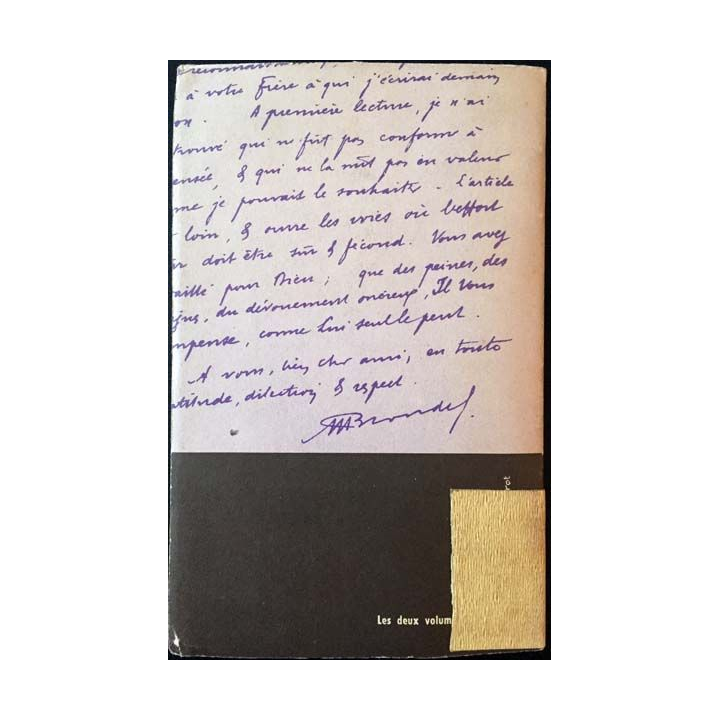 à votre Frère à qui j'écrirai demain
on. A première lecture, je n'ai
trouvé qui ne fût pas conforme à
ensée, & qui ne la mît pas en valeur
me je pouvais le souhaiter – L'article
loin, & ouvre les voies où l'effort
doit être sûr & fécond. Vous avez
vaillé pour Dieu ; que des peines, des
du dévouement onéreux, Il vous
mpense, comme Lui seul le peut.
A vous, bien cher ami, en toute
atitude, dilection & respect.
MBlondel.
rot
Les deux volum